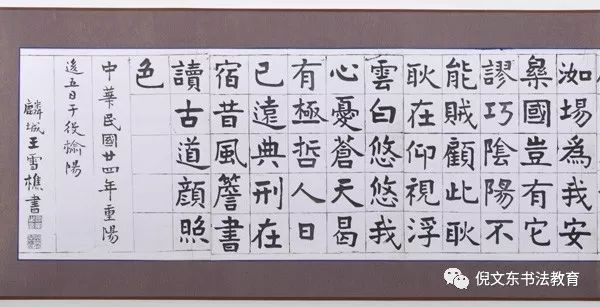 洳場為我安
樂國豈有它
謬巧陰陽不
能賊顧此耿
耿在仰視浮
雲白悠悠我
心憂蒼天曷
有極哲人日
已遠典刑在
宿昔風簷書
讀古道顏照
色
中華民國廿四年重陽
後五日于役榆陽
麟城王雪樵書
倪文东书法教育